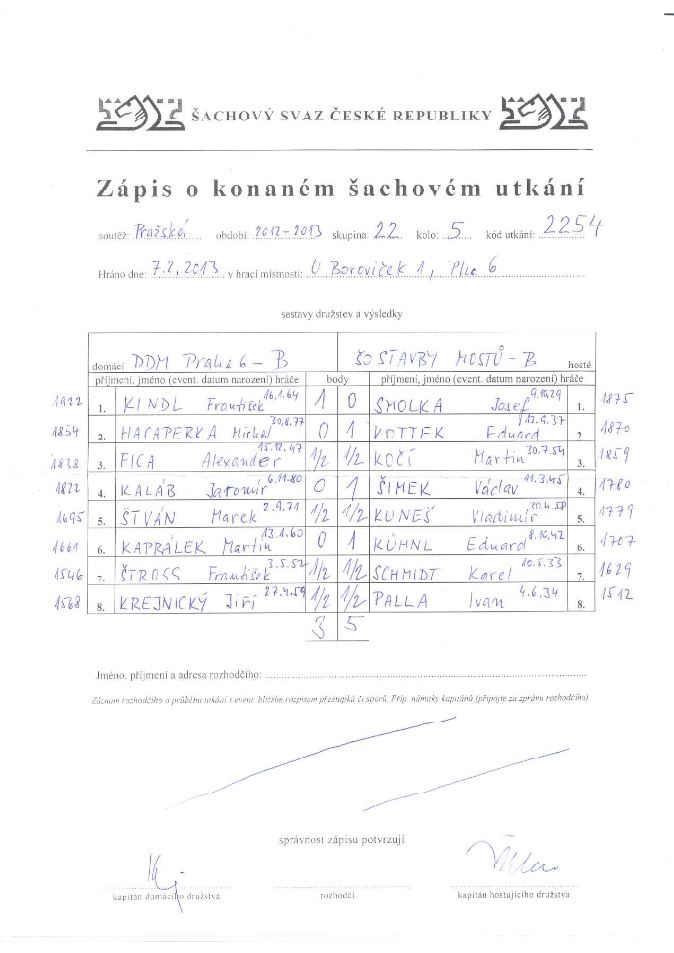 ŠACHOVÝ SVAZ ČESKÉ REPUBLIKY
Zápis o konaném šachovém utkání
soutěž: Pražská období: 2012-2013 skupina: 22 kolo: 5 kód utkání: 2254
Hráno dne: 7.2.2013 v hrací místnosti: U Boroviček 1, Pha 6
sestavy družstev a výsledky
domácí DDM Praha 6 - B ŠO STAVBY MOSTŮ - B hosté
příjmení, jméno (event. datum narození) hráče body příjmení, jméno (event. datum narození) hráče
1922 1. KINDL František 16.1.64 1 0 SMOLKA Josef 9.10.29 1. 1875
1854 2. HACAPERKA Michal 30.8.77 0 1 VOTTEK Eduard 12.9.37 2. 1870
1838 3. FICA Alexander 15.12.47 1/2 1/2 KOČÍ Martin 30.7.54 3. 1859
1822 4. KALÁB Jaromír 6.11.80 0 1 ŠIMEK Václav 11.3.45 4. 1780
1695 5. ŠTVÁN Marek 2.9.71 1/2 1/2 KUNEŠ Vladimír 20.4.58 5. 1779
1661 6. KAPRÁLEK Martin 13.1.60 0 1 KÜHNL Eduard 8.10.42 6. 1707
1546 7. ŠTROSS František 3.5.52 1/2 1/2 SCHMIDT Karel 10.5.33 7. 1629
1568 8. KREJNICKÝ Jiří 27.4.59 1/2 1/2 PALLA Ivan 4.6.34 8. 1512
3 5
Jméno, příjmení a adresa rozhodčího:
Záznam rozhodčího o průběhu utkání s event. bližším rozpisem přestupků či sporů. Příp. námitky kapitánů (připojte za zprávu rozhodčího)
správnost zápisu potvrzují
kapitán domácího družstva rozhodčí kapitán hostujícího družstva